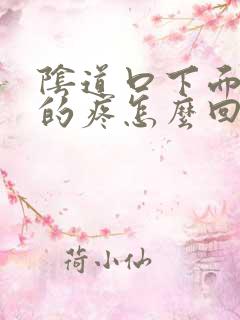 陰道口下面
的疼怎麼回
荷小仙